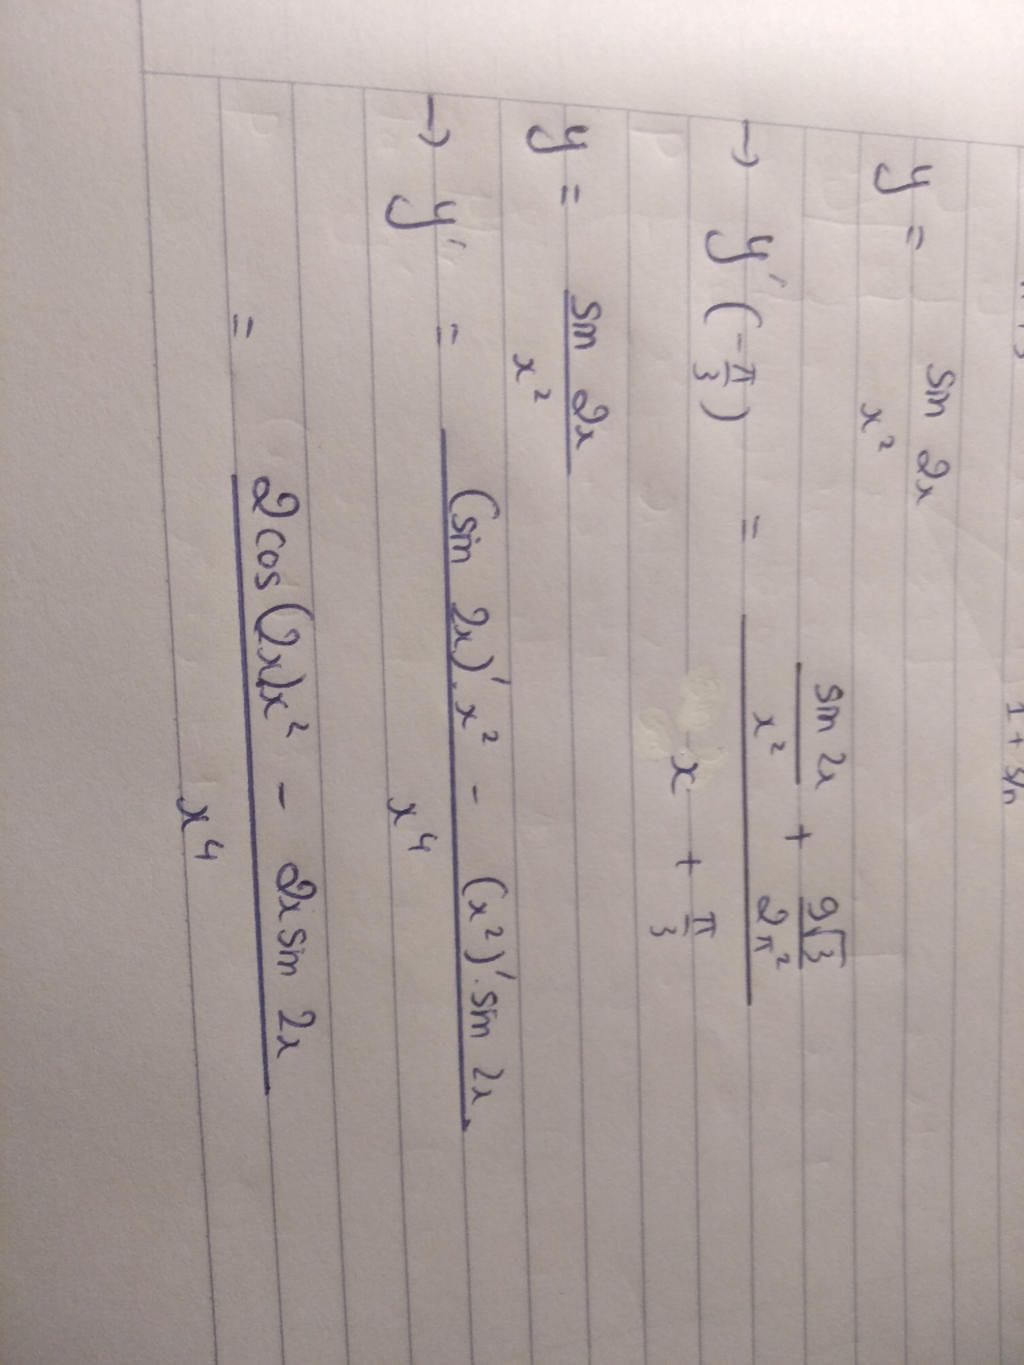 1 + sin
y = sin 2x
x²
→ y'(-π/3) = sin 2x / x² + 9√3 / 2π²
x + π/3
y = sin 2x / x²
→ y' = (sin 2x)'. x² - (x²)'. sin 2x
x⁴
= 2cos(2x)x² - 2x sin 2x
x⁴